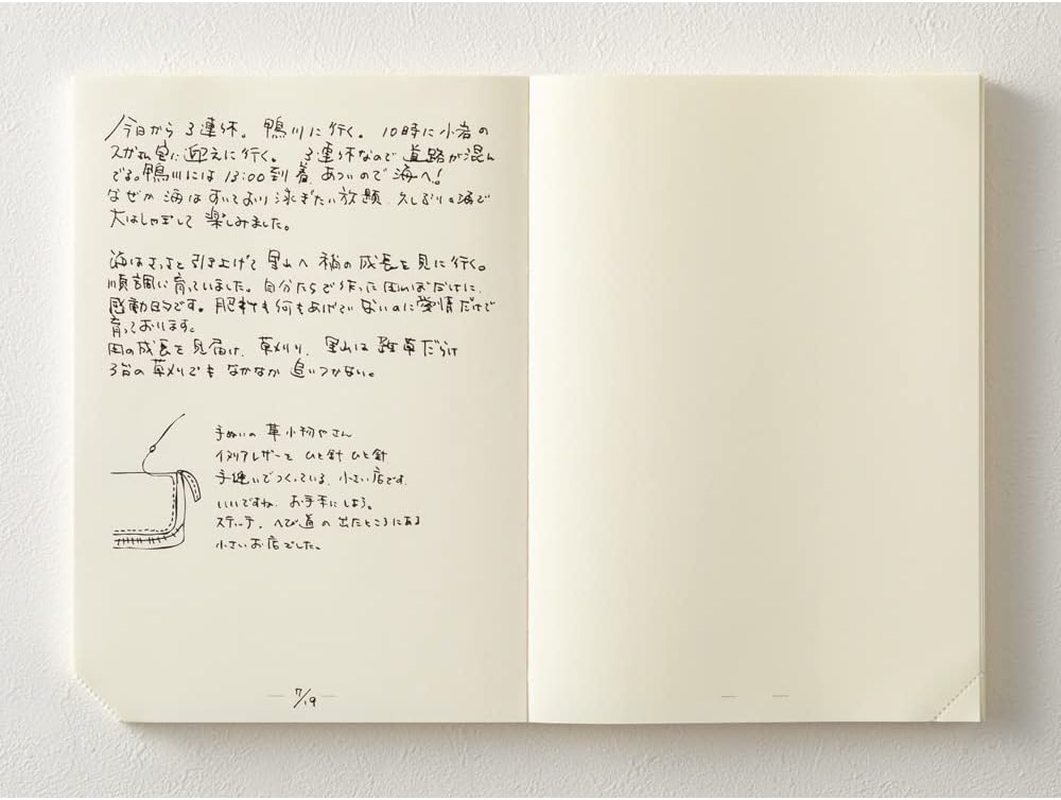 今日から3連休。鴨川に行く。10時に小岩の
スガさん宅に迎えに行く。3連休なので道路が混ん
でる。鴨川には13:00到着、あついので海へ！
なぜか海はすいており泳ぎたい放題、久しぶりの海で
大はしゃぎして楽しみました。
海はさっさと引き上げて里山へ稲の成長を見に行く。
順調に育っていました。自分たちで作った田んぼだけに、
感動的です。肥料も何もあげていないのに愛情だけで
育っております。
田の成長を見届け、草刈り、里山は雑草だらけ
3台の草刈りでもなかなか追いつかない。
手ぬいの革小物やさん
イタリアレザーをひと針ひと針
手縫いでつくっている、小さい店です。
いいですね、お手本にしよう。
ステッチ、へび道の出たところにある
小さいお店でした。
7/19